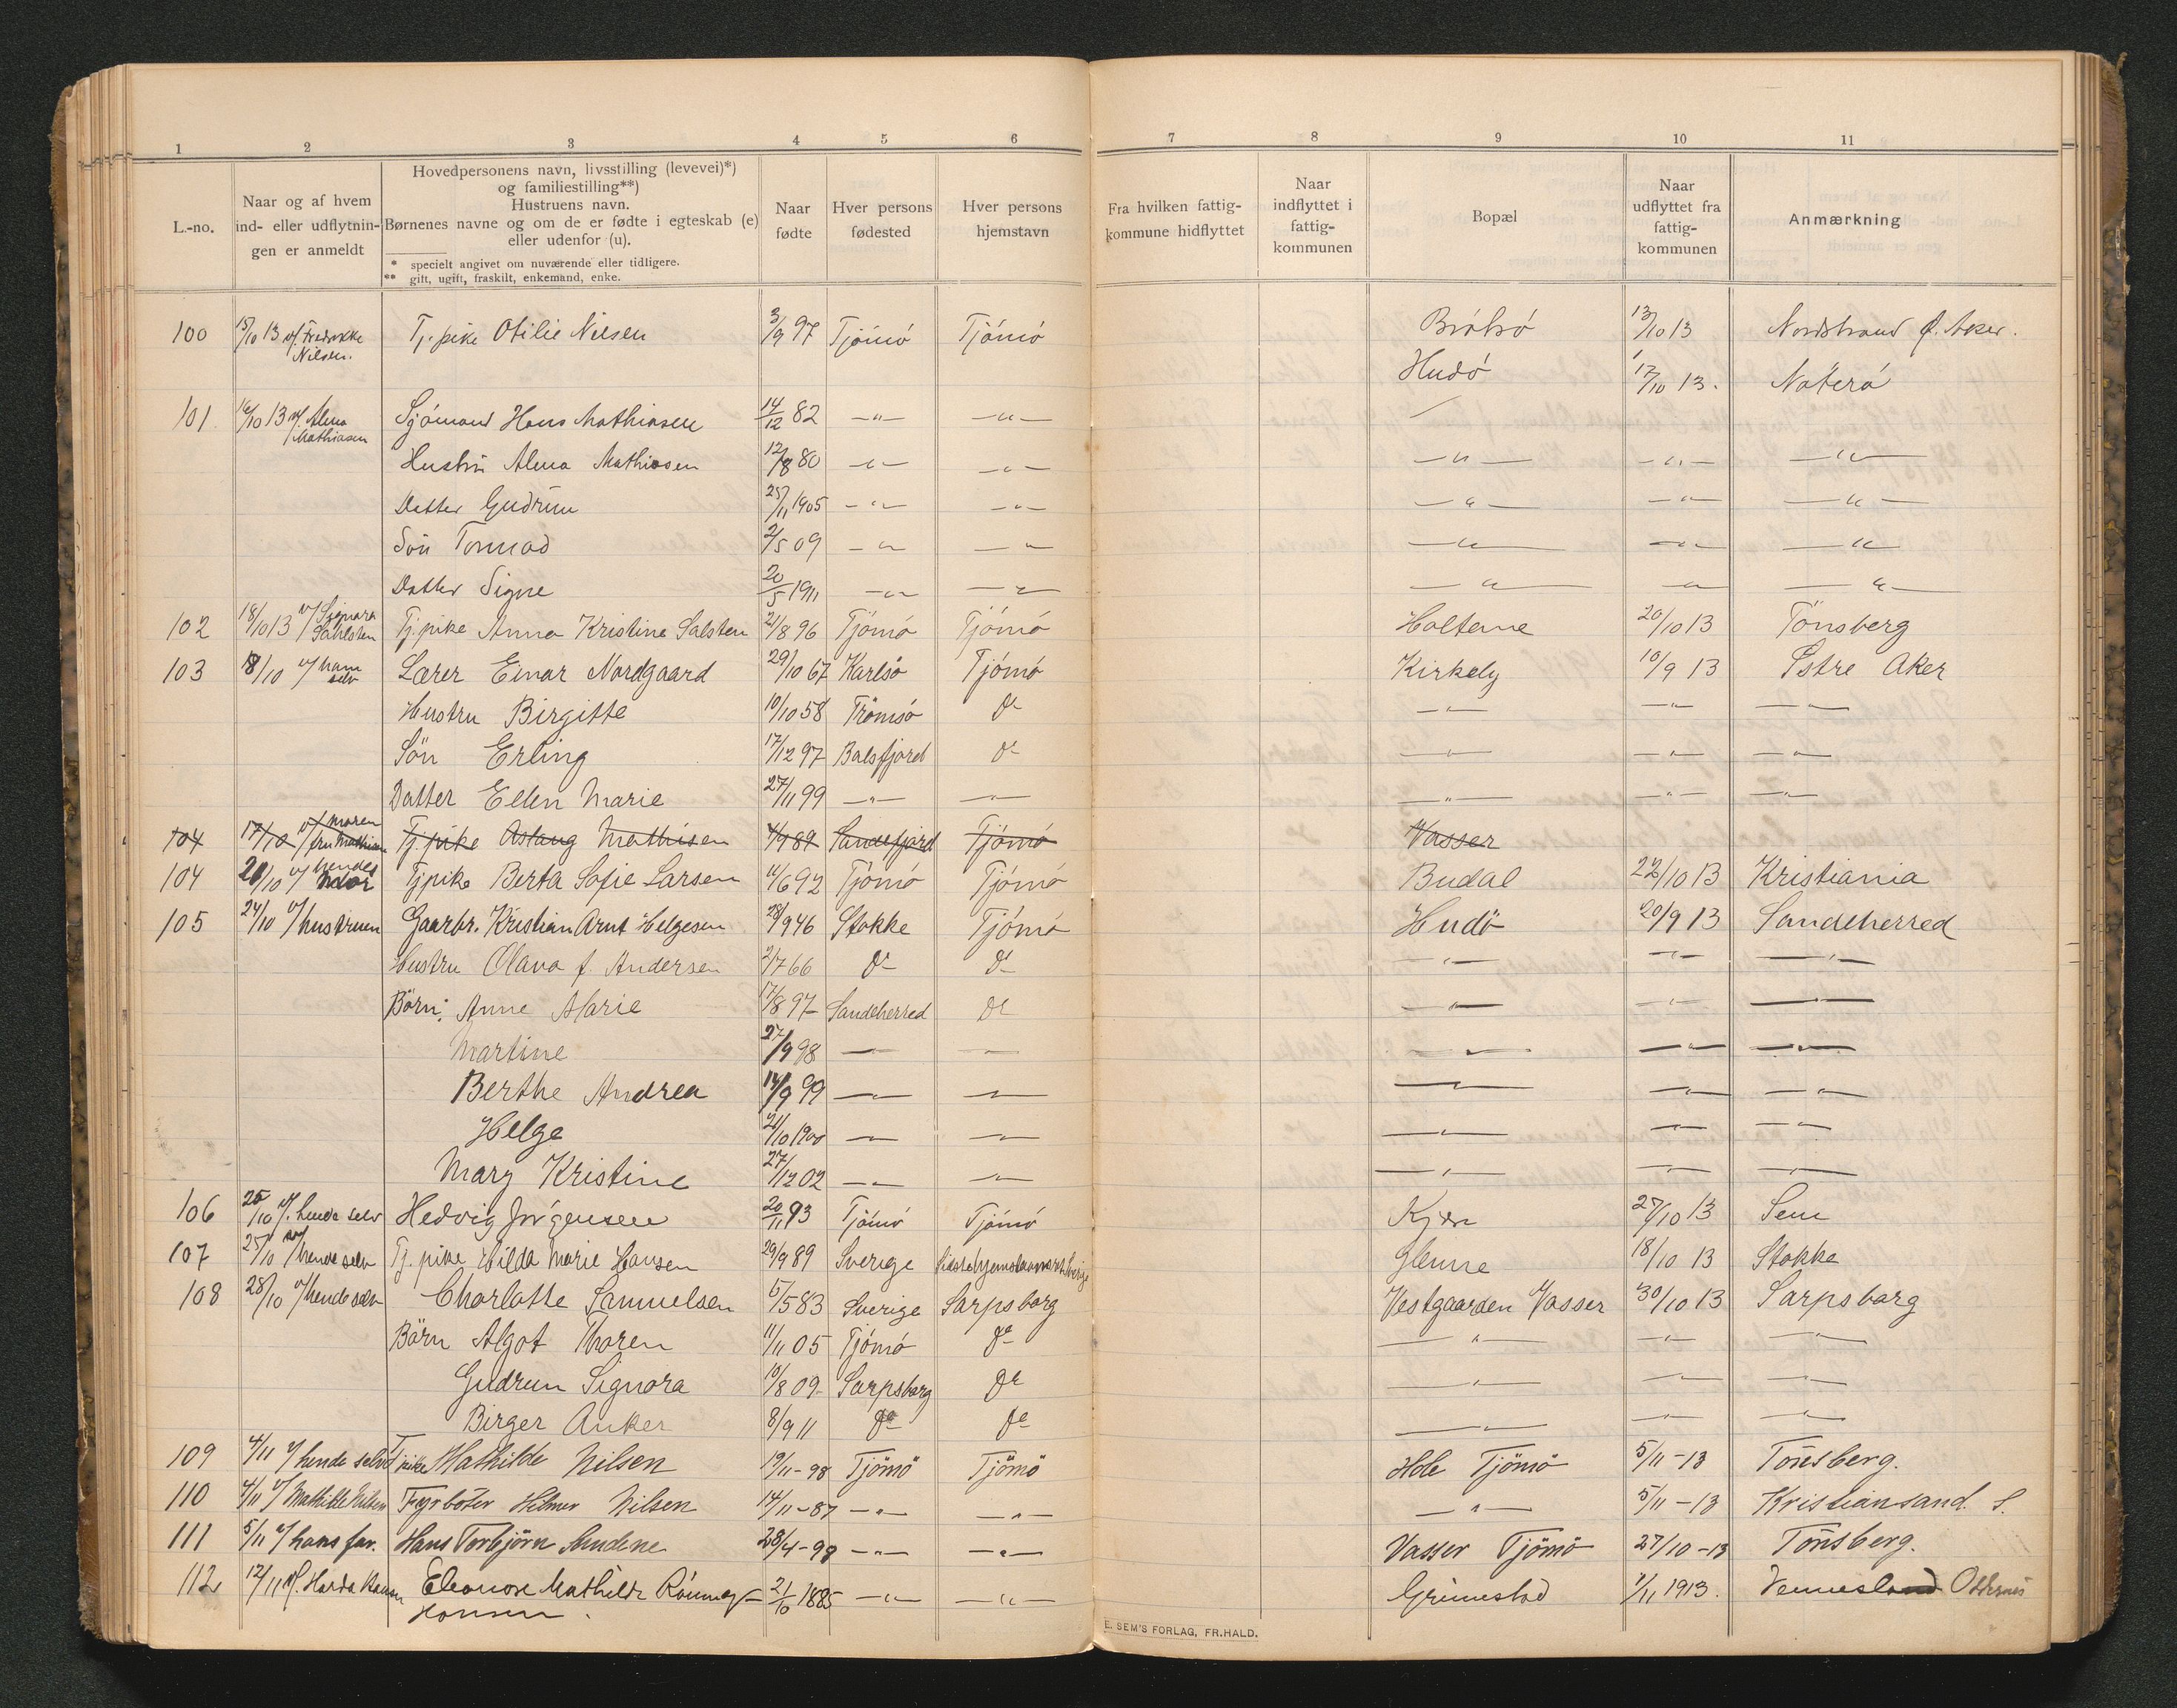 1 2 3 4 5 6 7 8 9 10 11
L.-no.
Naar og af hvem
ind- eller udflytnin-
gen er anmeldt
Hovedpersonens navn, livsstilling (levevei)*)
og familiestilling**)
Hustruens navn.
Børnenes navne og om de er fødte i egteskab (e)
eller udenfor (u).
* specielt angivet om nuværende eller tidligere.
** gift, ugift, fraskilt, enkemand, enke.
Naar
fødte
Hver persons
fødested
Hver persons
hjemstavn
Fra hvilken fattig-
kommune hidflyttet
Naar
indflyttet i
fattig-
kommunen
Bopæl
Naar
udflyttet fra
fattig-
kommunen
Anmærkning
100 15/10 13 v/ Fredrikke Nilsen. Tj. pike Otilie Nilsen 3/9 97 Tjömö Tjömö Bråtrö 13/10 13 Nordstrand Ø. Aker.
Hudö 17/10 13. Nöterö
101 16/10 13 v/ Alma Mathiasen Sjömand Hans Mathiasen 14/12 82 -"- -"-
Hustru Alma Mathiasen 12/8 80 -"- -"- -"- -"- -"-
Datter Gudrun 25/11 1905 -"- -"- -"- -"- -"-
Sön Tormod 2/5 09 -"- -"- -"- -"- -"-
Datter Signe 20/5 1911 -"- -"- -"- -"- -"-
102 18/10 13 v/ Signora Sahlsten Tj. pike Anna Kristine Salsten 21/8 96 Tjömö Tjömö Holtene 20/10 13 Tönsberg
103 18/10 v/ ham selv Lærer Einar Nordgaard 29/10 67 Karlsö Tjömö Kirkely 10/9 13 Östre Aker
Hustru Birgitte 10/10 58 Tromsö Do -"- -"- -"-
Sön Erling 17/12 97 Balsfjord Do -"- -"- -"-
Datter Ellen Marie 27/11 99 -"- -"- -"- -"- -"-
104 17/10 v/ Maren fru Mathisen Tj. pike Aslaug Mathisen 4/9 89 Sandefjord Tjömö Vasser
104 20/10 v/ hendes mor Tjpike Berta Sofie Larsen 11/6 92 Tjömö Tjömö Budal 22/10 13 Kristiania
105 24/10 v/ hustruen Gaarbr. Kristian Arnt Helgesen 28/9 46 Stokke Tjömö Hudö 20/9 13 Sandeherred
Hustru Olava f. Andersen 2/7 66 Do Do -"- -"- -"-
Börn: Anne Marie 17/8 97 Sandeherred Do -"- -"- -"-
Martine 27/9 98 -"- -"- -"- -"- -"-
Berthe Andrea 14/9 99 -"- -"- -"- -"- -"-
Helge 21/10 1900 -"- -"- -"- -"- -"-
Mary Kristine 27/12 02 -"- -"- -"- -"- -"-
106 25/10 v/. hende selv Hedvig Jörgensen 20/11 93 Tjömö Tjömö Kjær 27/10 13 Sem
107 25/10 v/ hende selv Tj. pike Hilda Marie Hansen 29/9 89 Sverige Sverige Glenne 18/10 13 Stokke
108 28/10 v/ hende selv Charlotte Samuelsen 5/5 83 Sverige Sarpsborg Vestgaarden Vasser 30/10 13 Sarpsborg
Börn Algot Thoren 11/11 05 Tjömö Do -"- -"- -"-
Gudrun Signora 10/8 09 Sarpsborg Do -"- -"- -"-
Birger Anker 8/9 11 Do Do -"- -"- -"-
109 4/11 v/ hende selv Tj. pike Mathilde Nilsen 19/11-98 Tjömö Tjömö Hole Tjömö 5/11-13 Tönsberg.
110 4/11 v/ Mathilde Nilsen Fyrböter Hilmer Nilsen 14/11-87 -"- -"- -"- 5/11-13 Kristiansand. S.
111 5/11 v/ hans far. Hans Torbjörn Sundene 28/4-98 -"- -"- Vasser Tjömö 27/10-13 Tönsberg.
112 12/11 v/. Eleonore Mathilde Rönning 21/10 1885 -"- -"- Grimestad 1/11 1913. Vennesland
Hansen.
E. SEM'S FORLAG, FR.HALD.